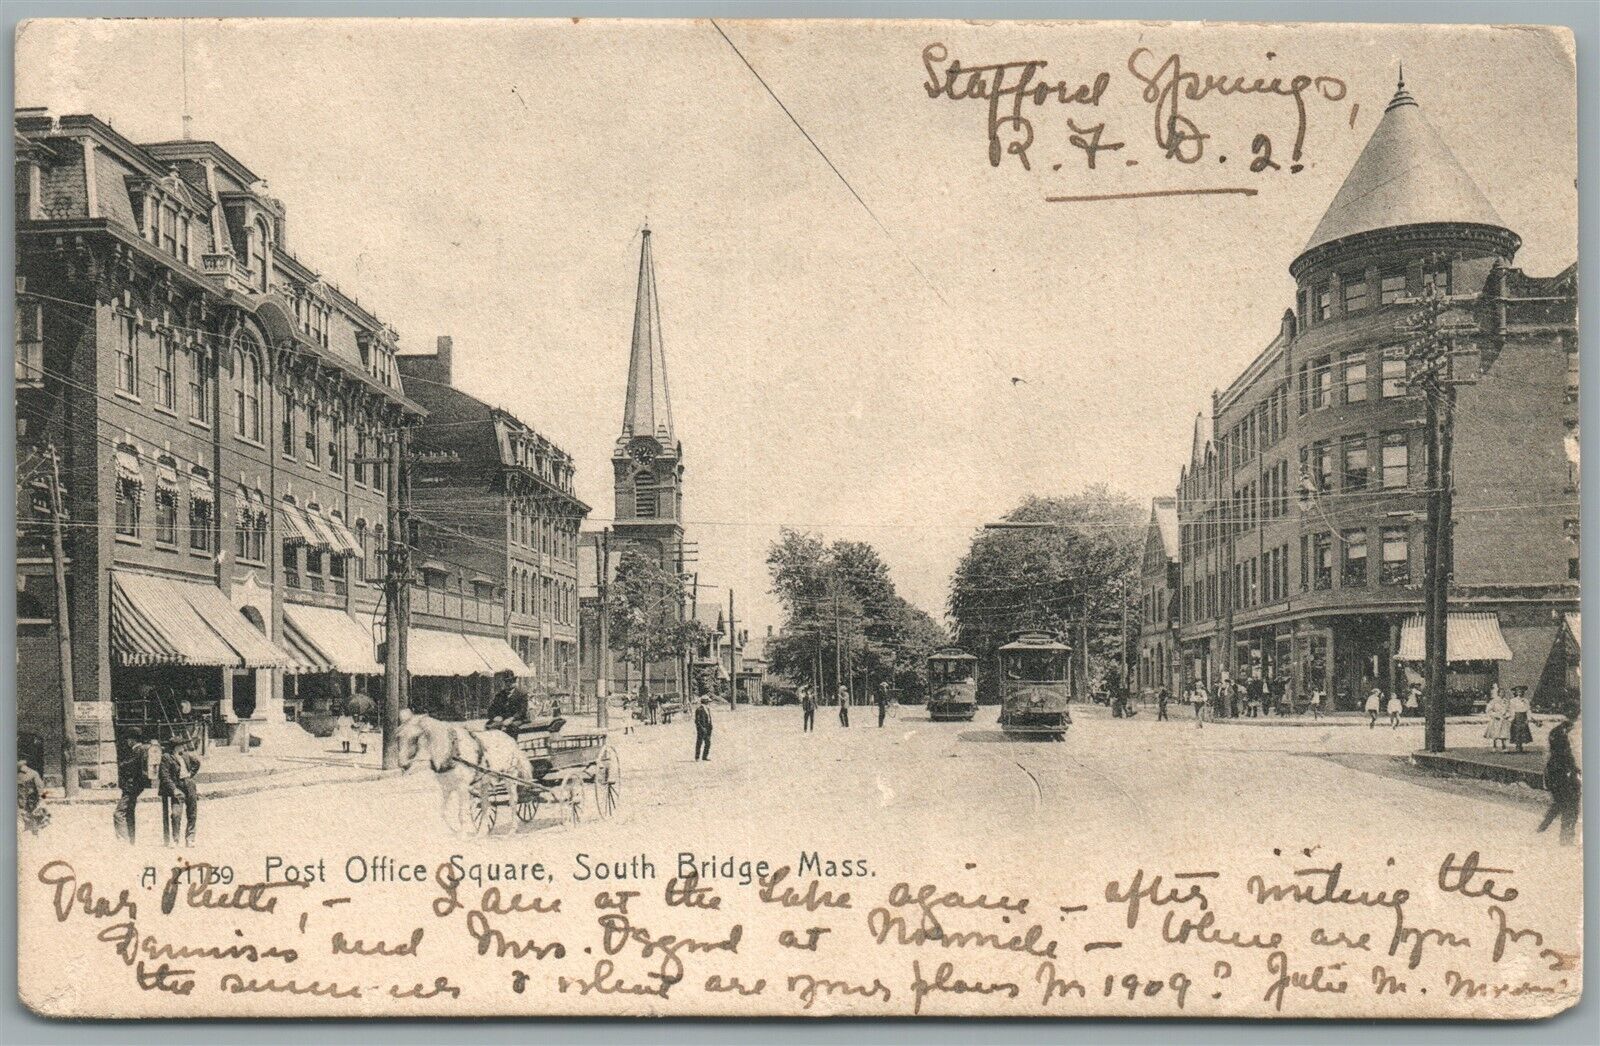 Stafford Springs,
R. F. D. 2.
A 21139 Post Office Square, South Bridge, Mass.
Dear, - I am at the Lake again - after visiting the
and Mrs. Osgood at Norwich - Where are you for
the summer & what are your plans for 1909? Julie M.